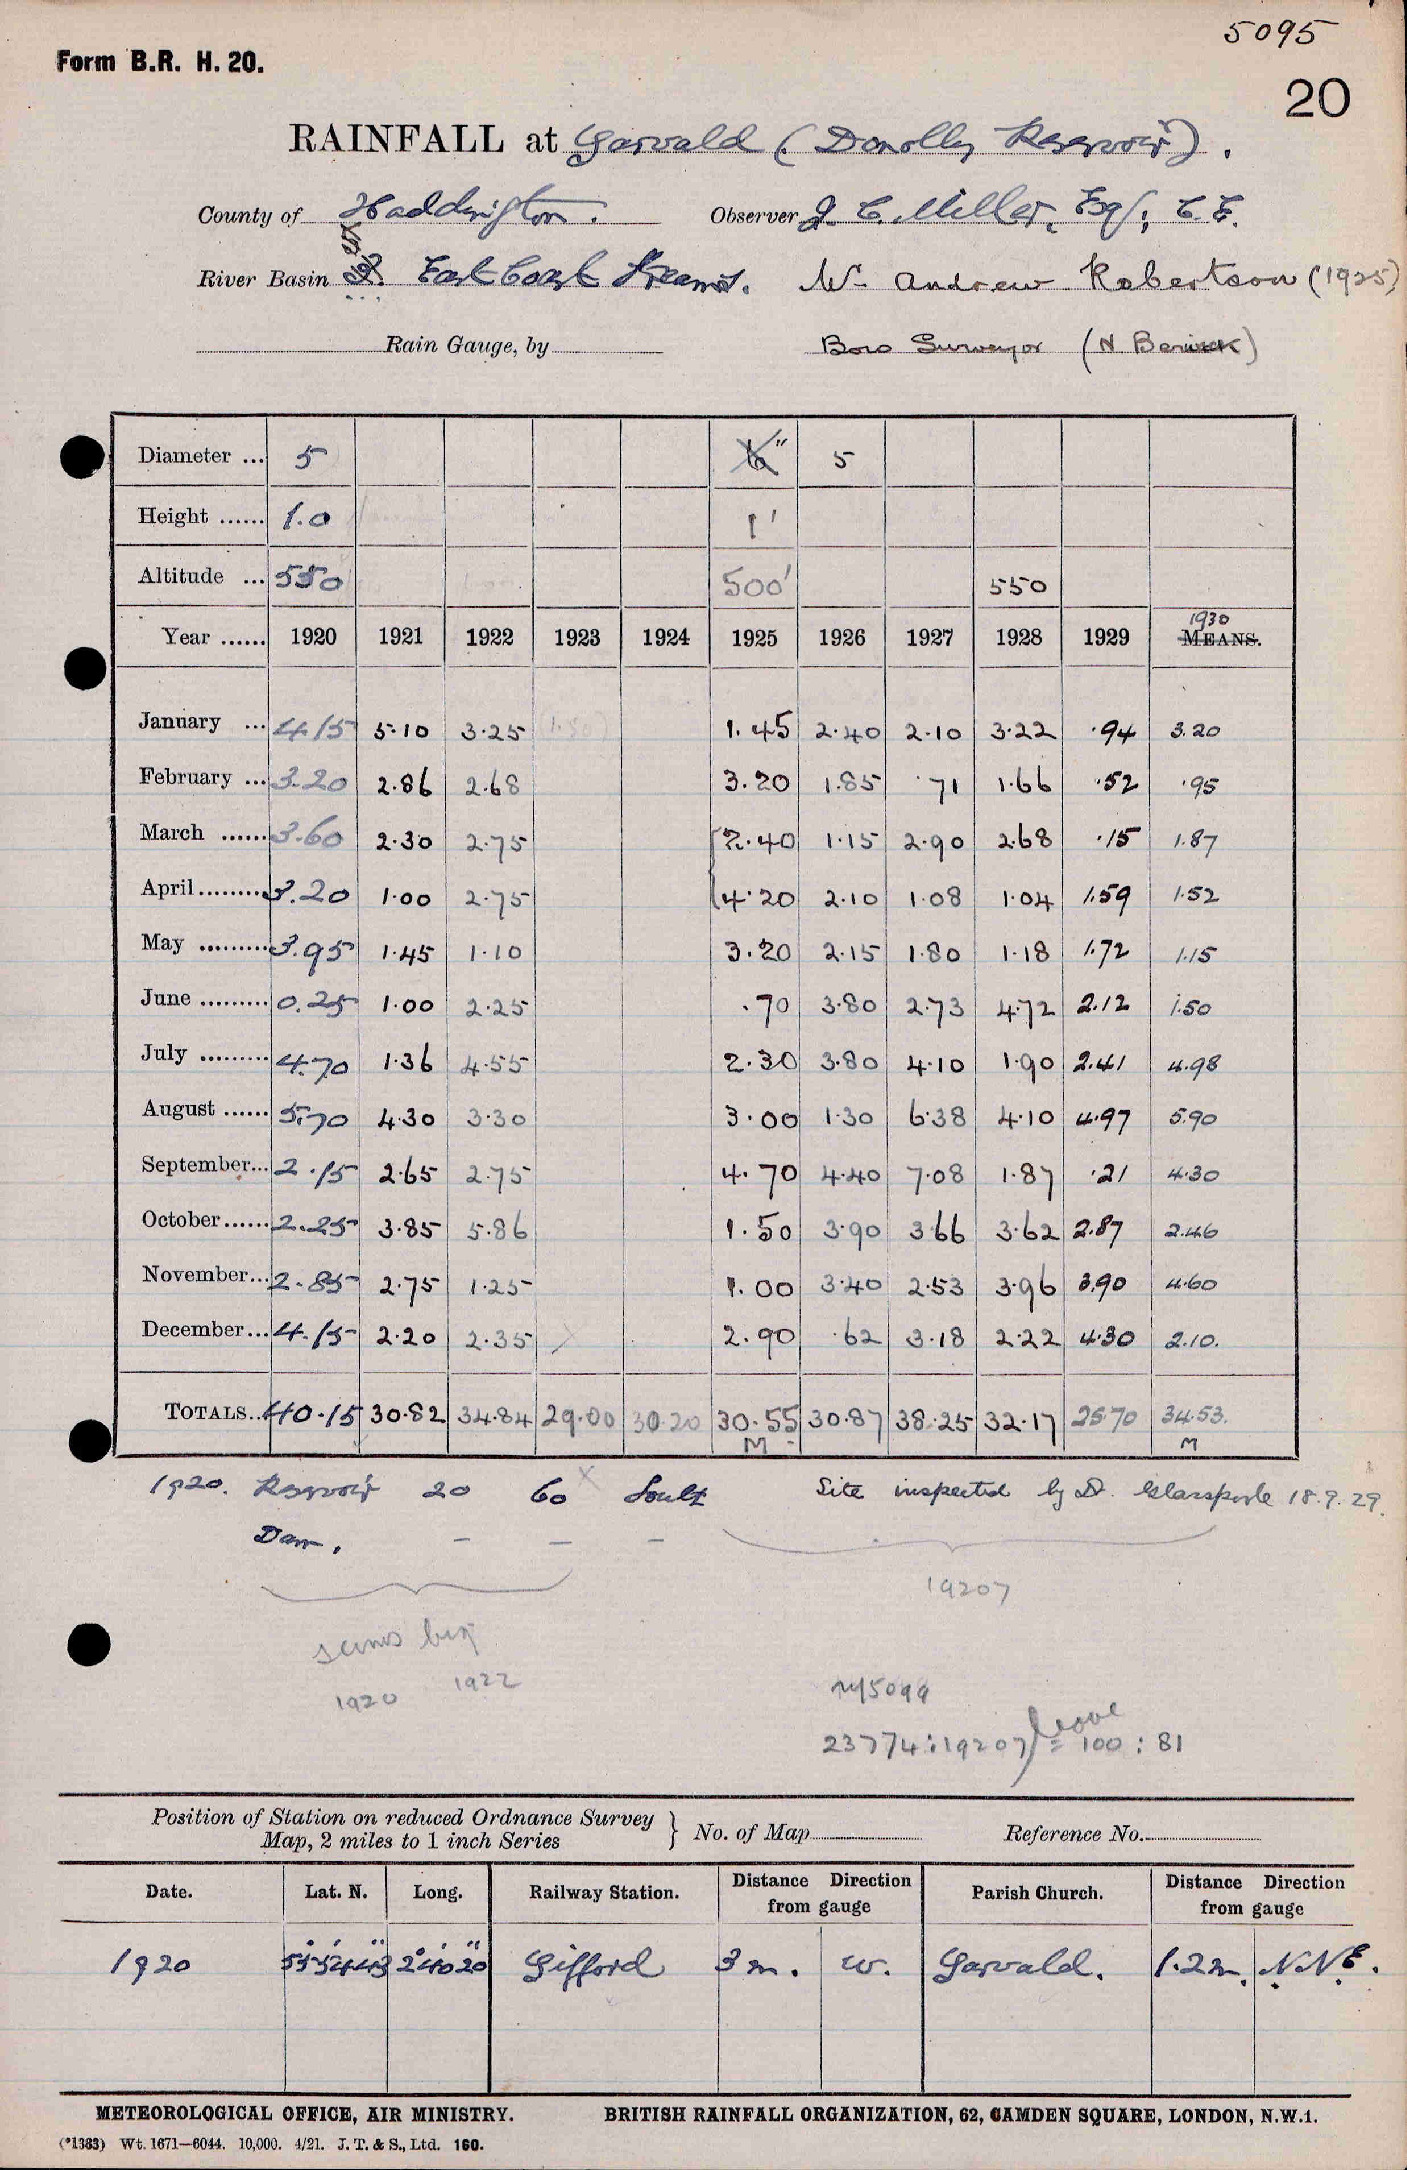 5095
Form B.R. H. 20.
20
RAINFALL at Garvald (Donolly Reservoir).
County of Haddington. Observer J. C. Miller, Esq., C.E.
River Basin East Coast Streams. Mr Andrew Robertson (1925)
Rain Gauge, by Boro Surveyor (N Berwick)
Diameter ... 5 6" 5
Height ...... 1.0 1'
Altitude ... 550 500' 550
1930
Year ...... 1920 1921 1922 1923 1924 1925 1926 1927 1928 1929 MEANS.
January ... 4.15 5.10 3.25 (1.50) 1.45 2.40 2.10 3.22 .94 3.20
February ... 3.20 2.86 2.68 3.20 1.85 .71 1.66 .52 .95
March ...... 3.60 2.30 2.75 2.40 1.15 2.90 2.68 .15 1.87
April ......... 3.20 1.00 2.75 4.20 2.10 1.08 1.04 1.59 1.52
May ......... 3.95 1.45 1.10 3.20 2.15 1.80 1.18 1.72 1.15
June ......... 0.25 1.00 2.25 .70 3.80 2.73 4.72 2.12 1.50
July ......... 4.70 1.36 4.55 2.30 3.80 4.10 1.90 2.41 4.98
August ...... 5.70 4.30 3.30 3.00 1.30 6.38 4.10 4.97 5.90
September... 2.15 2.65 2.75 4.70 4.40 7.08 1.87 .21 4.30
October...... 2.25 3.85 5.86 1.50 3.90 3.66 3.62 2.87 2.46
November... 2.85 2.75 1.25 1.00 3.40 2.53 3.96 3.90 4.60
December... 4.15 2.20 2.35 2.90 .62 3.18 2.22 4.30 2.10.
TOTALS.. 40.15 30.82 34.84 29.00 30.20 30.55 30.87 38.25 32.17 25.70 34.53.
M M
1920. Reservoir 20 60 South Site inspected by Dr. Glasspoole 18.9.29.
Dam. – – –
19207
seems big
1920 1922
5099
leave
23774:19207 = 100 : 81
Position of Station on reduced Ordnance Survey
Map, 2 miles to 1 inch Series } No. of Map Reference No.
Date. Lat. N. Long. Railway Station. Distance Direction from gauge Parish Church. Distance Direction from gauge
1920 55° 54' 43" 2° 40' 20" Gifford 3 m. W. Garvald. 1.2 m. N.N.E.
METEOROLOGICAL OFFICE, AIR MINISTRY. BRITISH RAINFALL ORGANIZATION, 62, CAMDEN SQUARE, LONDON, N.W.1.
(*1383) Wt. 1671—6044. 10,000. 4/21. J. T. & S., Ltd. 160.